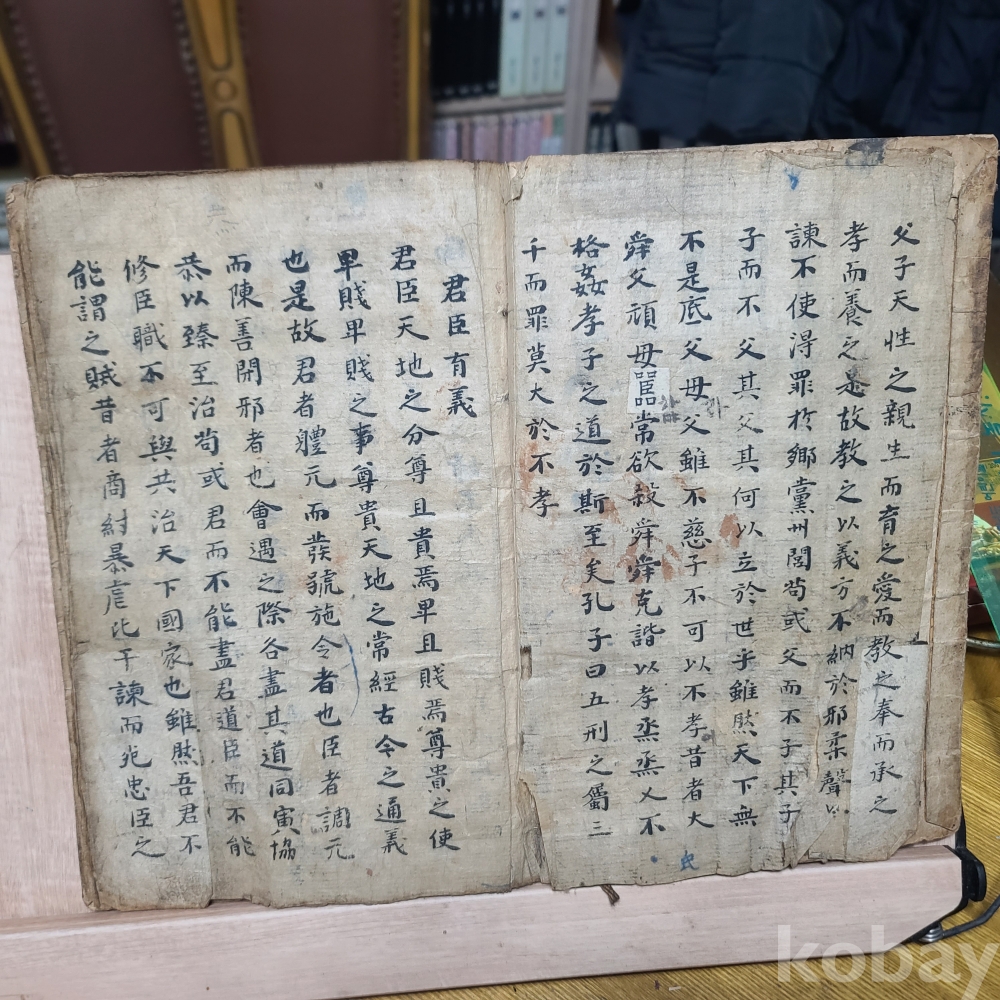 父子天性之親生而育之愛而教之奉而承之
孝而養之是故教之以義方不納於邪柔聲以
諫不使淂罪於鄉黨州閭苟或父而不子其子
子而不父其父其何以立於世乎雖然天下無
不是底父母父雖不慈子不可以不孝昔者大
舜父頑母嚚常欲殺舜舜克諧以孝烝烝乂不
格姦孝子之道於斯至矣孔子曰五刑之屬三
千而罪莫大於不孝
君臣有義
君臣天地之分尊且貴焉卑且賤焉尊貴之使
卑賤卑賤之事尊貴天地之常經古今之通義
也是故君者軆元而發號施令者也臣者調元
而陳善開邪者也會遇之際各盡其道同寅協
恭以臻至治苟或君而不能盡君道臣而不能
修臣職不可與共治天下國家也雖然吾君不
能謂之賊昔者商紂暴虐比干諫而死忠臣之
kobay